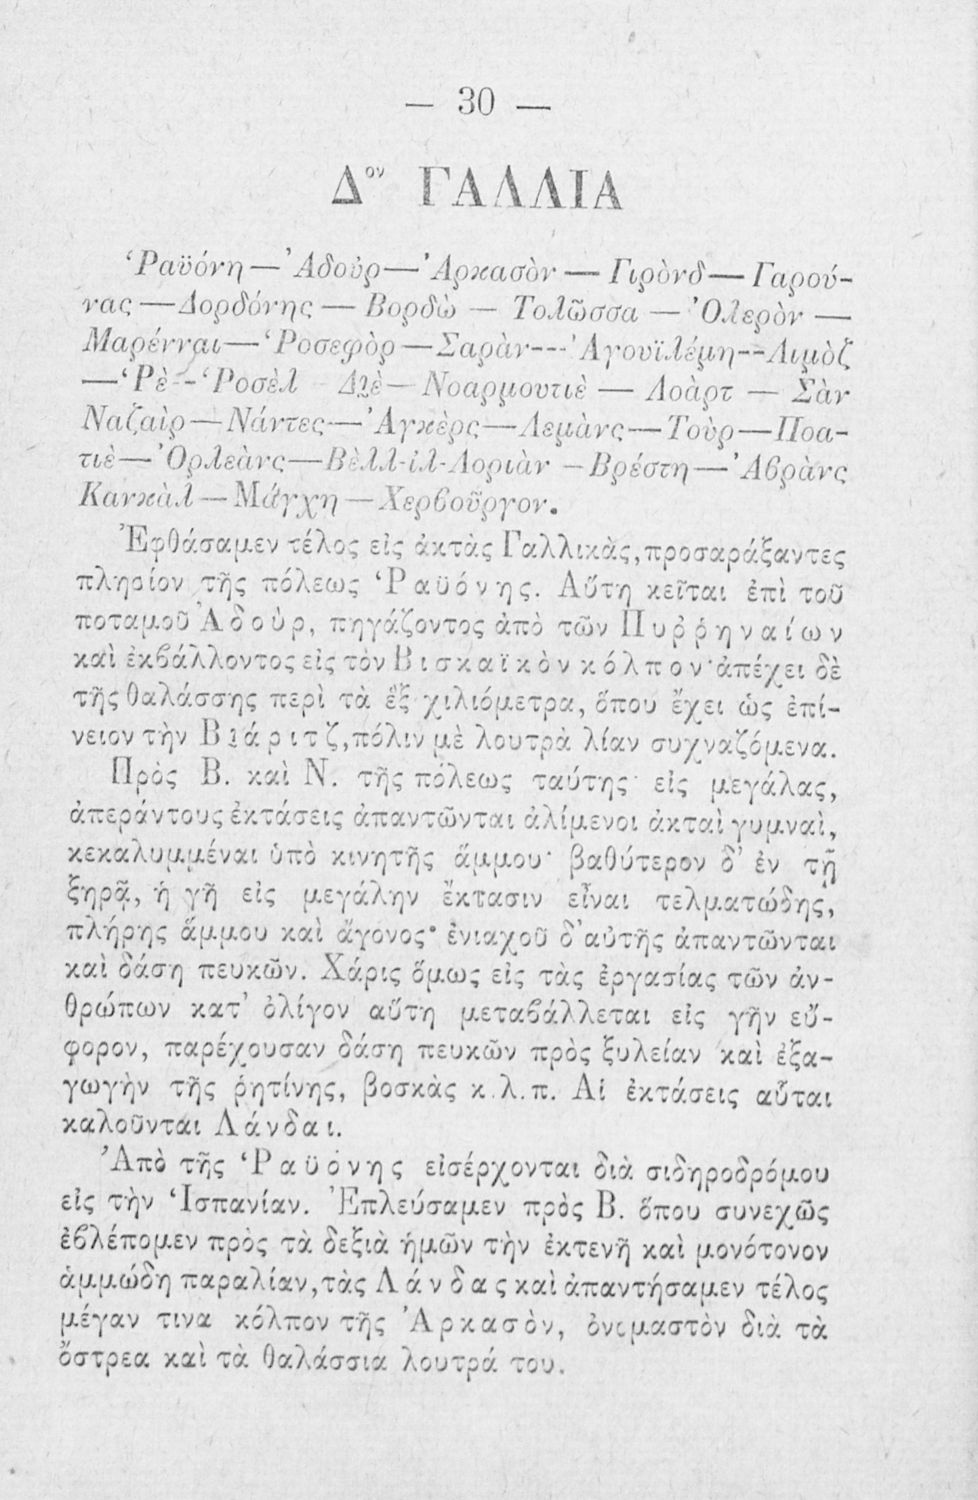 — 30 —
Δον ΓΑΛΛΙΑ
Ῥαϋόνη — Ἀδοὺρ — Ἀρκασὸν — Γιρὸνδ — Γαρού-
νας — Δορδόνης — Βορδὼ — Τολῶσσα — Ὀλερὸν —
Μαρένναι — Ῥοσεφὸρ — Σαρὰν — Ἀγουϊλέμη — Λιμὸζ
— Ῥὲ — Ῥοσὲλ — Διὲ — Νοαρμουτιὲ — Λοὰρτ — Σὰν
Ναζαὶρ — Νάντες — Ἀγκὲρς — Λεμὰνς — Τοὺρ — Ποα-
τιὲ — Ὀρλεὰνς — Βὲλλ-ἰλ-Λοριὰν — Βρέστη — Ἀβρὰνς
Κανκὰλ — Μάγχη — Χερβοῦργον.
Ἐφθάσαμεν τέλος εἰς ἀκτὰς Γαλλικὰς, προσαράξαντες
πλησίον τῆς πόλεως Ῥαϋόνης. Αὕτη κεῖται ἐπὶ τοῦ
ποταμοῦ Ἀδοὺρ, πηγάζοντος ἀπὸ τῶν Πυῤῥηναίων
καὶ ἐκβάλλοντος εἰς τὸν Βισκαϊκὸν κόλπον· ἀπέχει δὲ
τῆς θαλάσσης περὶ τὰ ἓξ χιλιόμετρα, ὅπου ἔχει ὡς ἐπί-
νειον τὴν Βιάριτζ, πόλιν μὲ λουτρὰ λίαν συχναζόμενα.
Πρὸς Β. καὶ Ν. τῆς πόλεως ταύτης εἰς μεγάλας,
ἀπεράντους ἐκτάσεις ἀπαντῶνται ἀλίμενοι ἀκταὶ γυμναὶ,
κεκαλυμμέναι ὑπὸ κινητῆς ἄμμου· βαθύτερον δ’ ἐν τῇ
ξηρᾷ, ἡ γῆ εἰς μεγάλην ἔκτασιν εἶναι τελματώδης,
πλήρης ἄμμου καὶ ἄγονος· ἐνιαχοῦ δ’ αὐτῆς ἀπαντῶνται
καὶ δάση πευκῶν. Χάρις ὅμως εἰς τὰς ἐργασίας τῶν ἀν-
θρώπων κατ’ ὀλίγον αὕτη μεταβάλλεται εἰς γῆν εὔ-
φορον, παρέχουσαν δάση πευκῶν πρὸς ξυλείαν καὶ ἐξα-
γωγὴν τῆς ῥητίνης, βοσκὰς κ.λ.π. Αἱ ἐκτάσεις αὗται
καλοῦνται Λάνδαι.
Ἀπὸ τῆς Ῥαϋόνης εἰσέρχονται διὰ σιδηροδρόμου
εἰς τὴν Ἱσπανίαν. Ἐπλεύσαμεν πρὸς Β. ὅπου συνεχῶς
ἐβλέπομεν πρὸς τὰ δεξιὰ ἡμῶν τὴν ἐκτενῆ καὶ μονότονον
ἀμμώδη παραλίαν, τὰς Λάνδας καὶ ἀπαντήσαμεν τέλος
μέγαν τινα κόλπον τῆς Ἀρκασὸν, ὀνομαστὸν διὰ τὰ
ὄστρεα καὶ τὰ θαλάσσια λουτρά του.